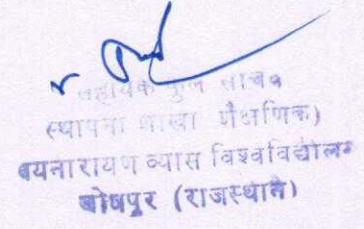 सहायक कुल सचिव
(स्थापना शाखा शैक्षणिक)
जयनारायण व्यास विश्वविद्यालय
जोधपुर (राजस्थान)